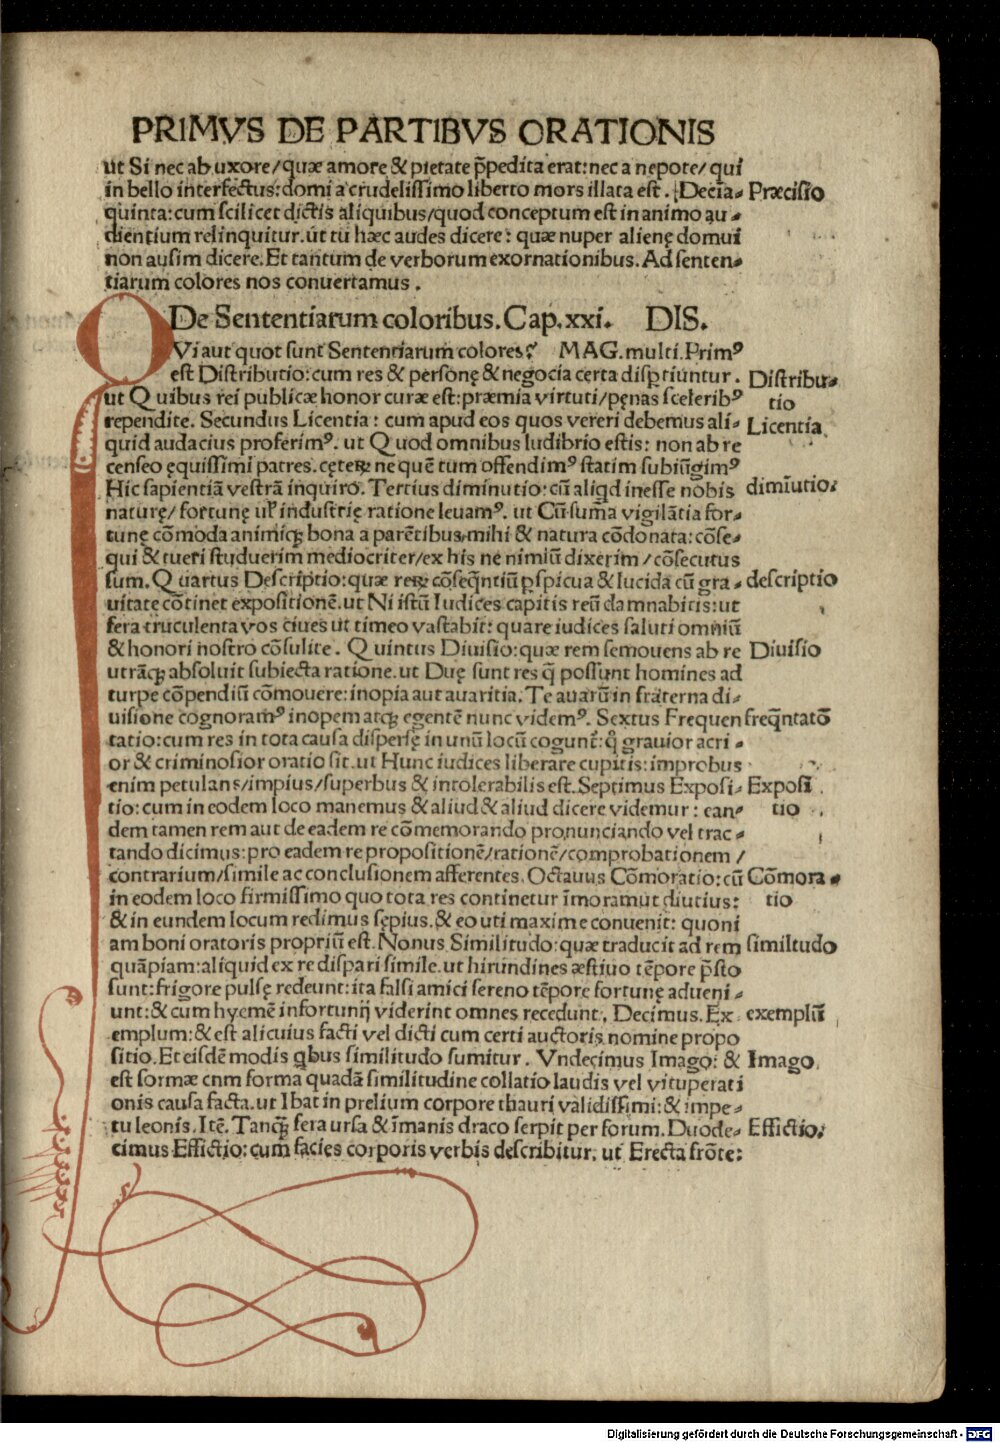 PRIMVS DE PARTIBVS ORATIONIS
ut Si nec ab uxore/quæ amore & pietate p̄pedita erat: nec a nepote/ qui
in bello interfectus: domi a crudelissimo liberto mors illata est. Decia- Præcisio
quinta: cum scilicet dictis aliquibus/quod conceptum est in animo au-
dientium relinquitur. ut tu hæc audes dicere: quæ nuper alienę domui
non ausim dicere. Et tantum de verborum exornationibus. Ad senten-
tiarum colores nos conuertamus.
De Sententiarum coloribus. Cap. xxi. DIS.
QVi aut quot sunt Sententiarum colores? MAG. multi. Primꝰ
est Distributio: cum res & personę & negocia certa disp̱tiuntur. Distribu-
ut Quibus rei publicæ honor curæ est: præmia virtuti/pęnas sceleribꝰ tio
rependite. Secundus Licentia: cum apud eos quos vereri debemus ali- Licentia
quid audacius proferimꝰ. ut Quod omnibus ludibrio estis: non ab re
censeo ęquissimi patres. cęteꝝ ne quē tum offendimꝰ statim subiūgimꝰ
Hic sapientiā vestrā inquiro. Tertius diminutio: cū aliqd inesse nobis dimīutio:
naturę/ fortunę uł industrię ratione leuamꝰ. ut Cū suma vigilātia for-
tunę cōmoda animiqꝫ bona a parētibus mihi & natura cōdonata: cōse-
qui & tueri studuerim mediocriter/ex his ne nimiū dixerim/cōsecutus
sum. Quartus Descriptio: quæ reꝝ cōseq̄ntiū ꝑspicua & lucida cū gra- descriptio
uitate cōtinet expositionē. ut Ni istū Iudices capitis reū damnabitis: ut
fera truculenta vos ciues ut timeo vastabit: quare iudices saluti omniū
& honori nostro cōsulite. Quintus Diuisio: quæ rem semouens ab re Diuisio
utrāqꝫ absoluit subiecta ratione. ut Duę sunt res q̄ possunt homines ad
turpe cōpendiū cōmouere: inopia aut auaritia. Te auarū in fraterna di-
uisione cognoramꝰ inopem atqꝫ egentē nunc videmꝰ. Sextus Frequen freq̄ntatō
tatio: cum res in tota causa dispersę in unū locū cogunt̄: q̊ grauior acri-
or & criminosior oratio sit. ut Hunc iudices liberare cupitis: improbus
enim petulans/impius/superbus & intolerabilis est. Septimus Exposi- Exposi
tio: cum in eodem loco manemus & aliud & aliud dicere videmur: ean- tio
dem tamen rem aut de eadem re cōmemorando pronunciando vel trac-
tando dicimus: pro eadem re propositionē/rationē/comprobationem/
contrarium/simile ac conclusionem afferentes. Octauus Cōmoratio: cū Cōmora-
in eodem loco firmissimo quo tota res continetur īmoramur diutius: tio
& in eundem locum redimus sępius. & eo uti maxime conuenit: quoni
am boni oratoris propriū est. Nonus Similitudo: quæ traducit ad rem similtudo
quāpiam: aliquid ex re dispari simile. ut hirundines æstiuo tēpore p̄sto
sunt: frigore pulsę redeunt: ita falsi amici sereno tēpore fortunę adueni-
unt: & cum hyemē infortunij viderint omnes recedunt. Decimus. Ex exemplū
emplum: & est alicuius facti vel dicti cum certi auctoris nomine propo
sitio. Et eisdē modis q̇bus similitudo sumitur. Vndecimus Imago: & Imago
est formæ cnm forma quadā similitudine collatio laudis vel vituperati
onis causa facta. ut Ibat in prelium corpore thauri validissimi: & impe-
tu leonis. Itē. Tanqꝫ fera ursa & īmanis draco serpit per forum. Duode- Effictio:
cimus Effictio: cum facies corporis verbis describitur. ut Erecta frōte:
Digitalisierung gefördert durch die Deutsche Forschungsgemeinschaft - DFG